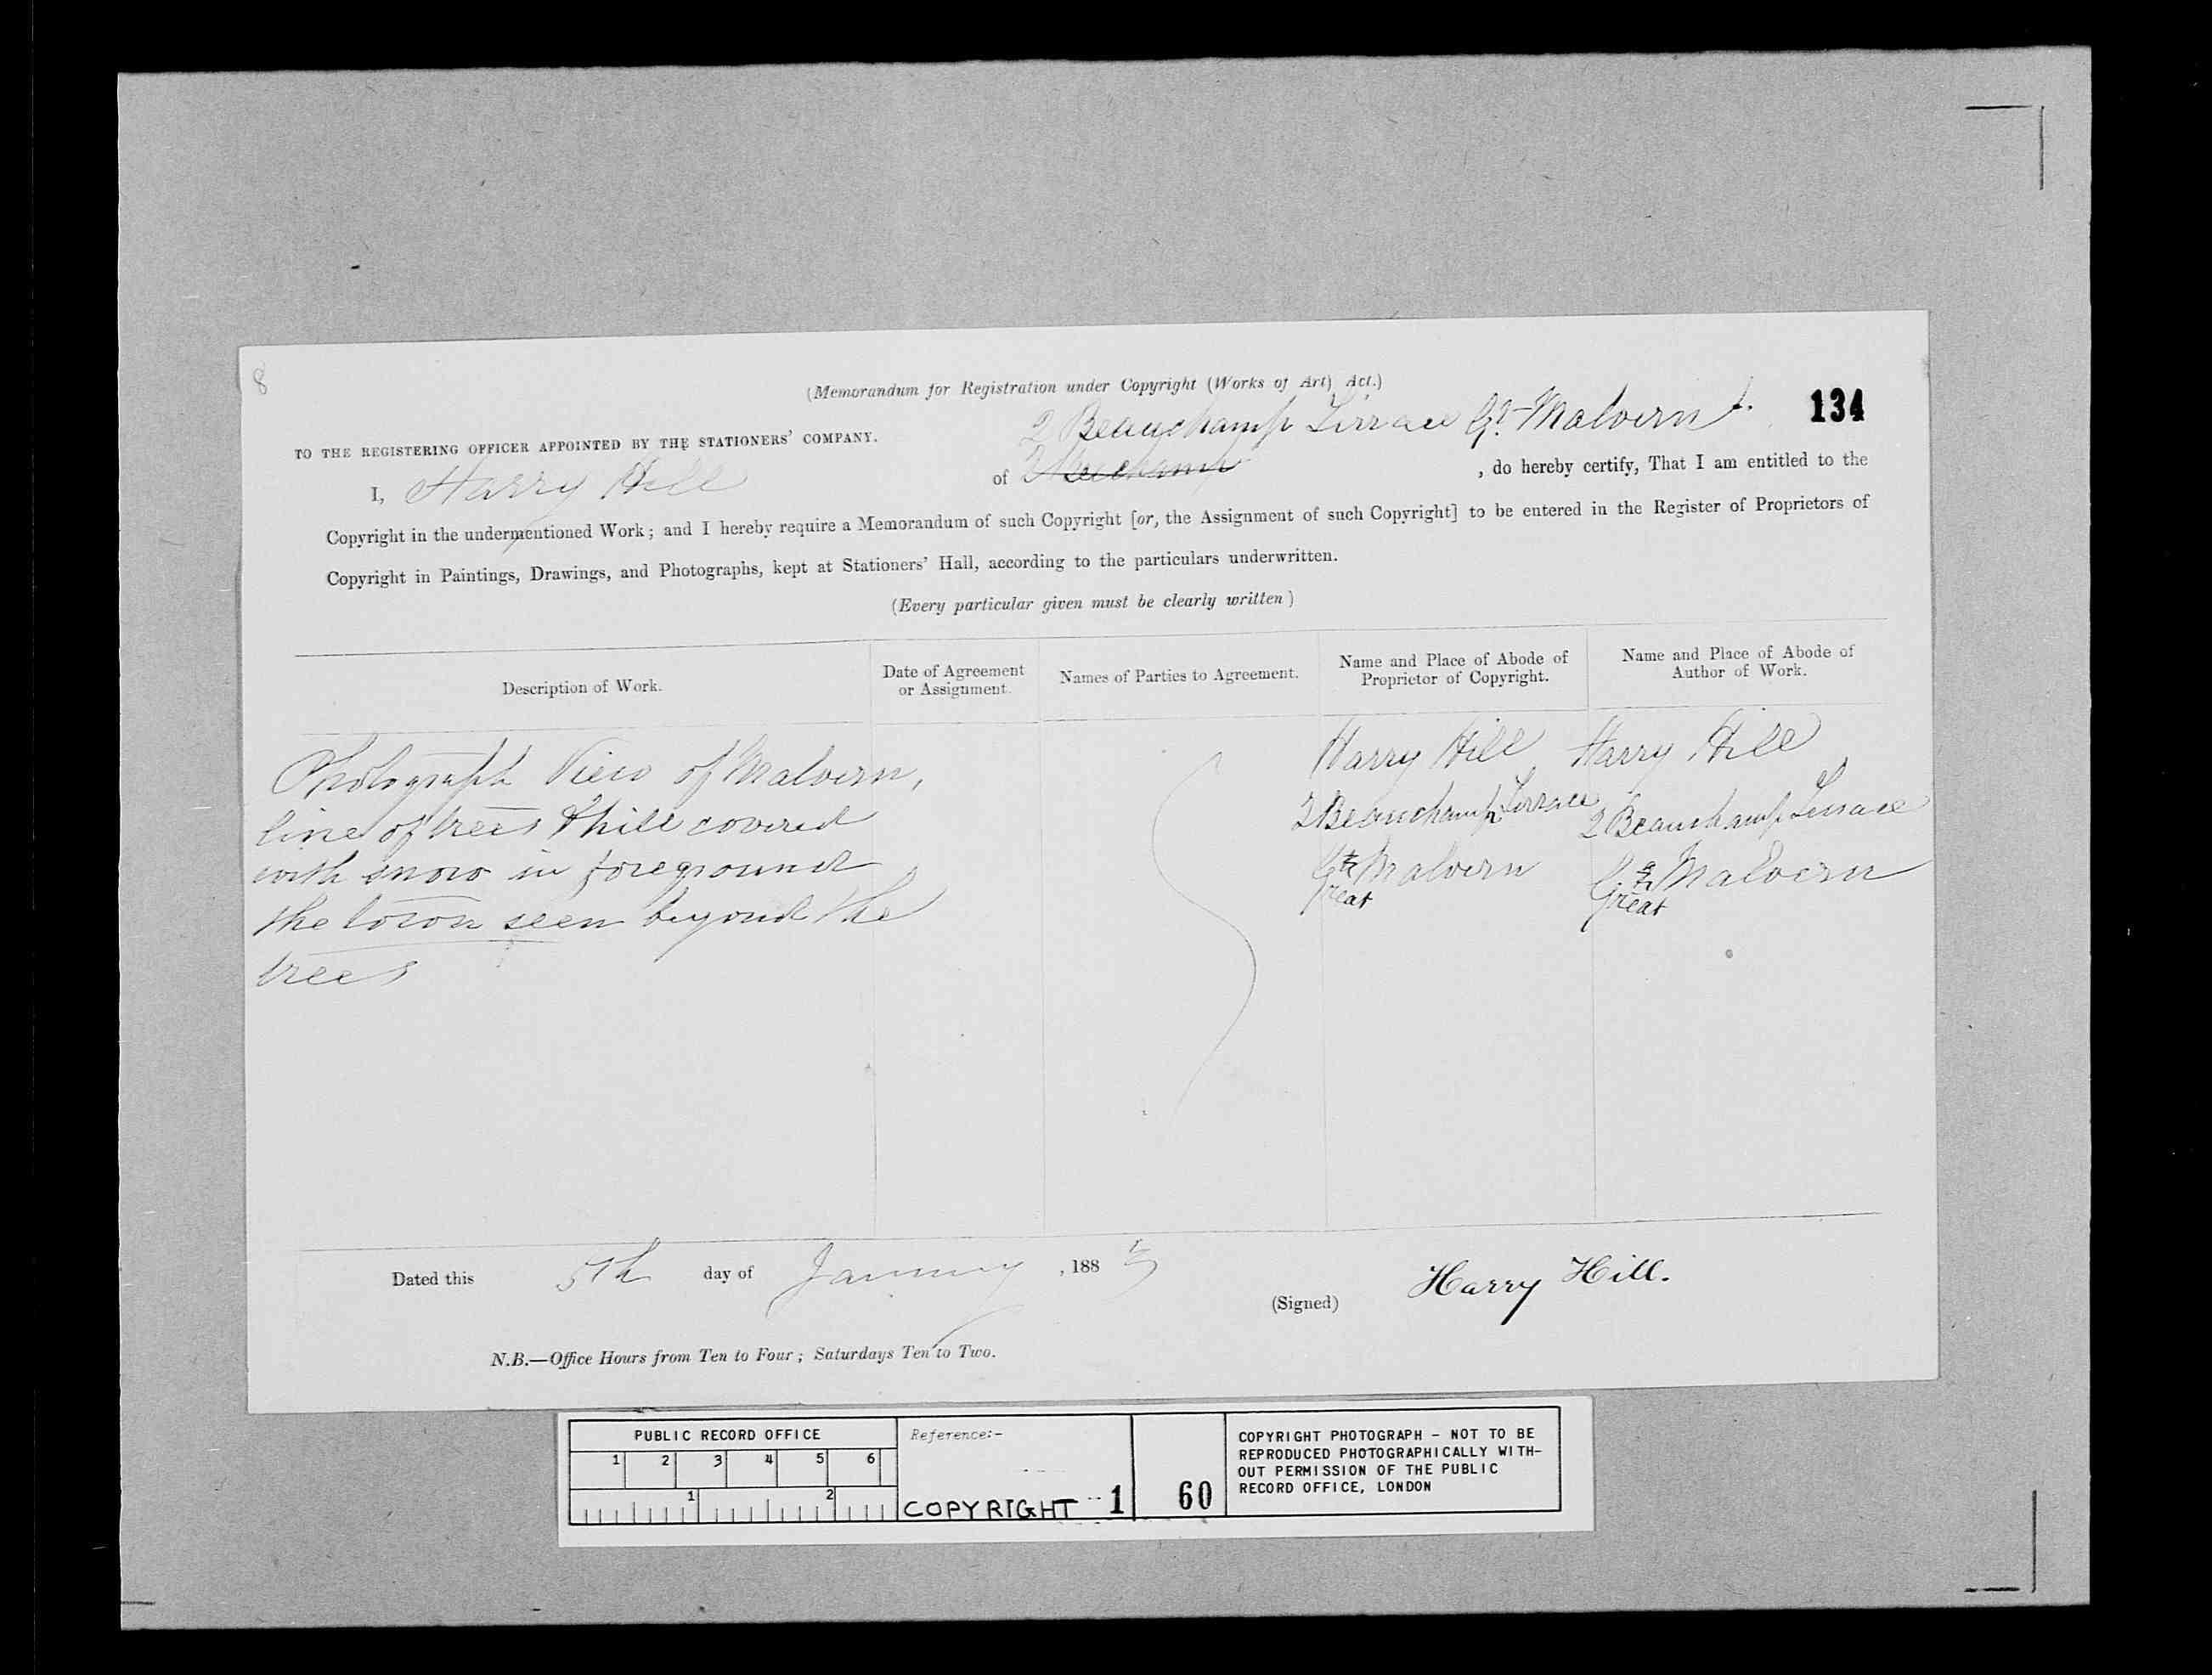 8
(Memorandum for Registration under Copyright (Works of Art) Act.)
134
TO THE REGISTERING OFFICER APPOINTED BY THE STATIONERS' COMPANY.
2 Beauchamp Terrace Gt Malvern
I, Harry Hill of 2 Beuchamp , do hereby certify, That I am entitled to the
Copyright in the undermentioned Work; and I hereby require a Memorandum of such Copyright [or, the Assignment of such Copyright] to be entered in the Register of Proprietors of
Copyright in Paintings, Drawings, and Photographs, kept at Stationers' Hall, according to the particulars underwritten.
(Every particular given must be clearly written)
Description of Work.
Date of Agreement
or Assignment.
Names of Parties to Agreement.
Name and Place of Abode of
Proprietor of Copyright.
Name and Place of Abode of
Author of Work.
Photograph View of Malvern,
line of trees & hill covered
with snow in foreground
the town seen beyond the
trees
Harry Hill
2 Beauchamp Terrace
Gt Malvern
Great
Harry Hill
2 Beauchamp Terrace
Gt Malvern
Great
Dated this 5th day of January , 1883
(Signed) Harry Hill.
N.B.—Office Hours from Ten to Four; Saturdays Ten to Two.
PUBLIC RECORD OFFICE
1 2 3 4 5 6
1 2
Reference:-
COPYRIGHT 1
60
COPYRIGHT PHOTOGRAPH - NOT TO BE
REPRODUCED PHOTOGRAPHICALLY WITH-
OUT PERMISSION OF THE PUBLIC
RECORD OFFICE, LONDON